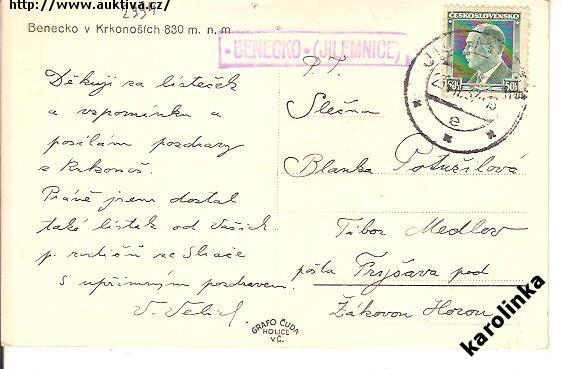 http://www.auktiva.cz/
2995
Benecko v Krkonoších 830 m. n. m
• BENECKO • (JILEMNICE)
ČESKOSLOVENSKO
50h 50h
Děkuji za lísteček
a vzpomínku a
posílám pozdravy
z Krkonoš.
Právě jsem dostal
také lístek od Vašich
p. rodičů ze Sliače
S upřímným pozdravem
V.
P. T.
Slečna
Blanka Potužilová
Tábor Medlov
pošta Fryšava pod
Žákovou Horou
GRAFO ČUDA
HOLICE
V Č.
karolinka